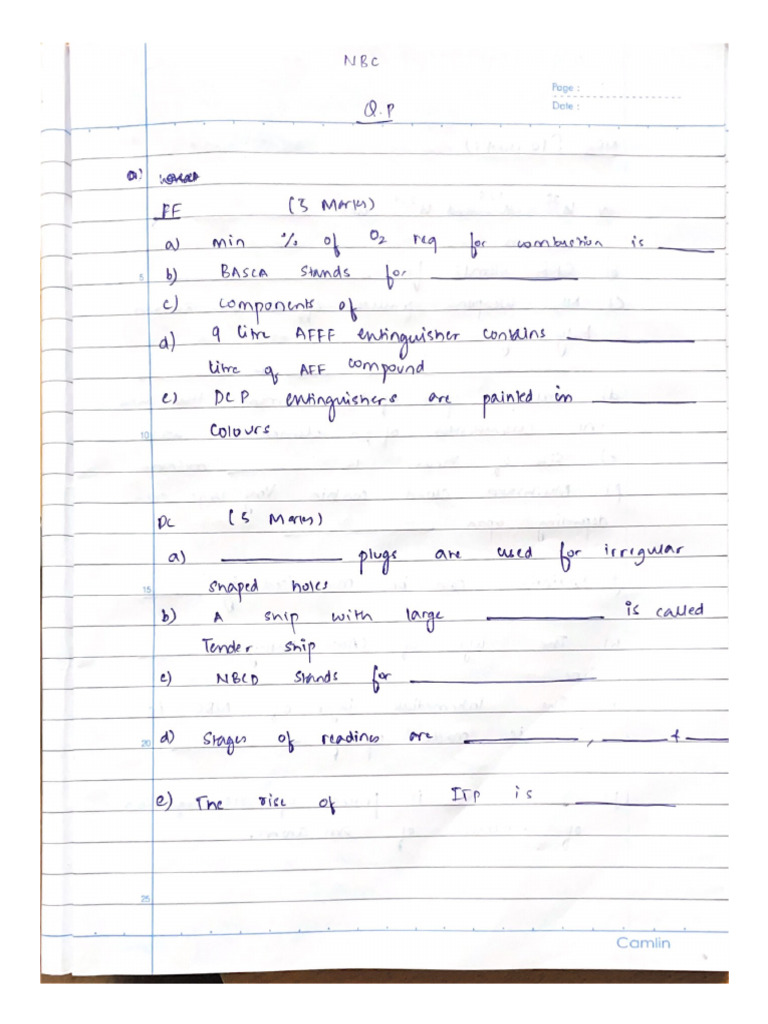 NBC
Page :
Q.P
Date :
a)
FF (5 Marks)
a) min % of O2 req for combustion is ____
5 b) BASCA stands for ________
c) components of
d) 9 litre AFFF extinguisher contains ________
litre of AFF compound
e) DCP extinguishers are painted in ________
10 colours
DC (5 Marks)
a) ________ plugs are used for irregular
15 shaped holes
b) A ship with large ________ is called
Tender ship
c) NBCD stands for ________
20 d) Stages of readines are ________, ______ + ____
e) The rise of ITP is ________
25
Camlin